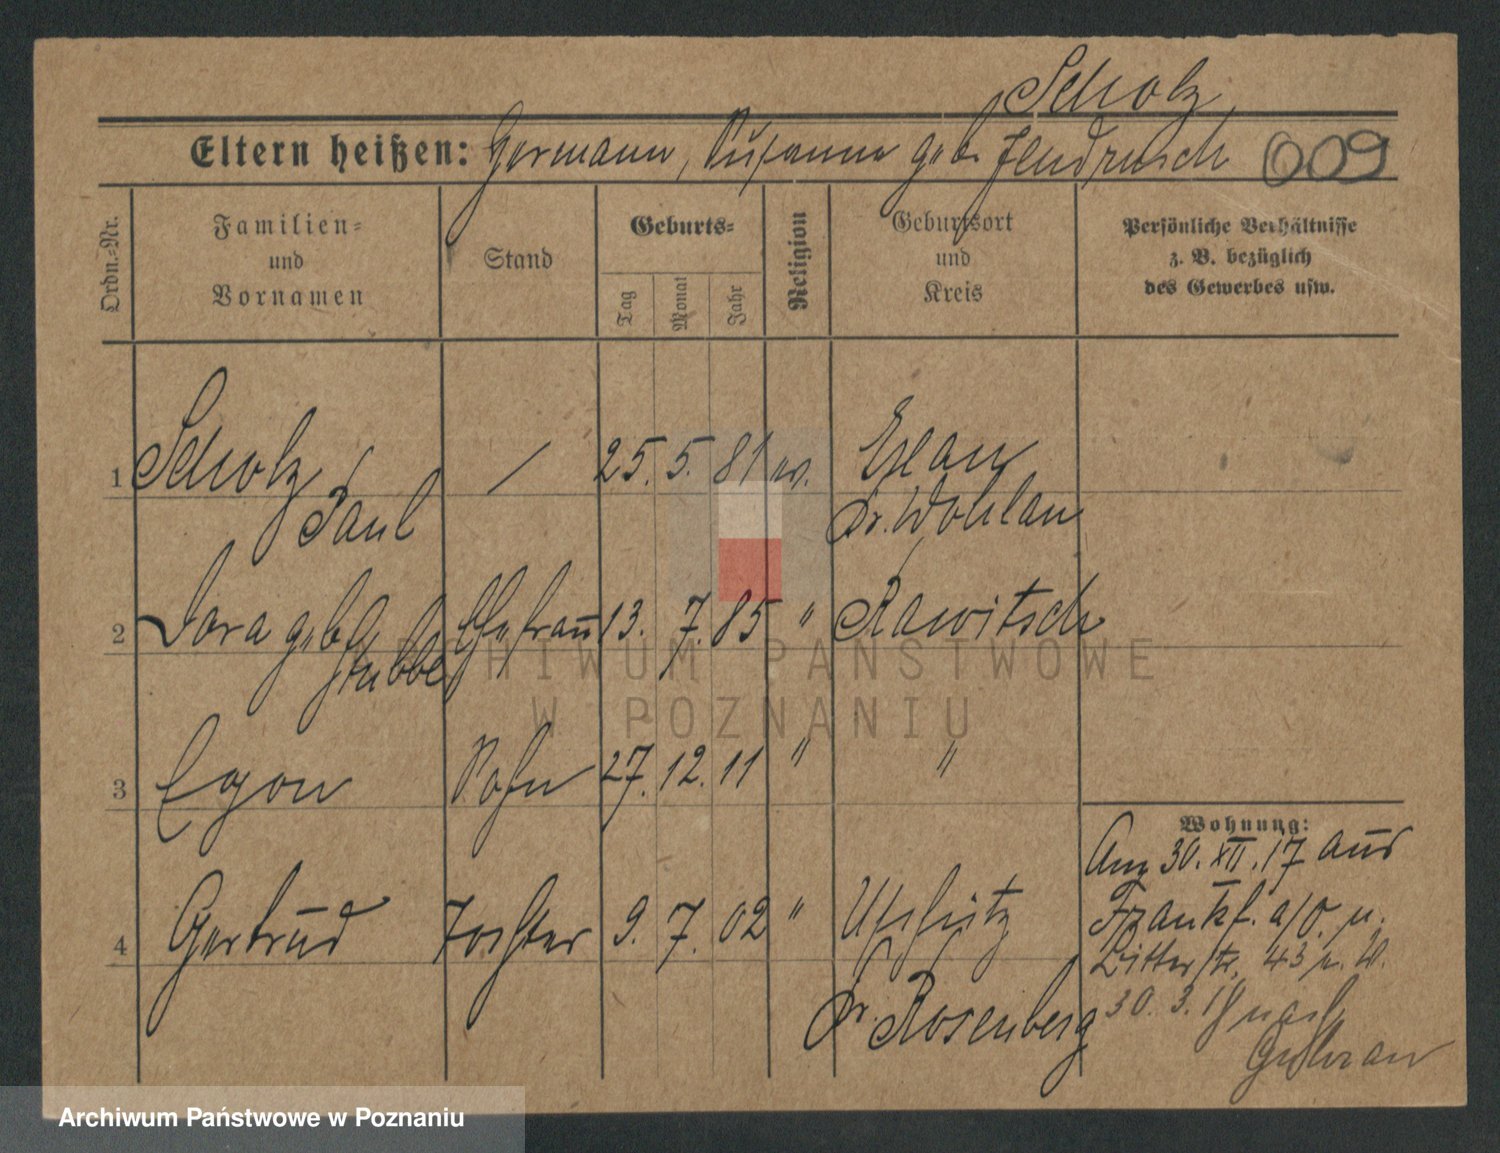 Scholz
Eltern heißen: Hermann, Susanna geb. Jendrusch 009
Ordn.-Nr.
Familien-
und
Vornamen
Stand
Geburts-
Tag
Monat
Jahr
Religion
Geburtsort
und
Kreis
Persönliche Verhältnisse
z. B. bezüglich
des Gewerbes usw.
1 Scholz / 25. 5. 81 ev.
Paul Kr. Wohlau
2 Dora geb. Ehefrau 13. 7. 85 " Rawitsch
Stubbe
3 Egon Sohn 27. 12. 11 " "
Wohnung:
Am 30. XII. 17 aus
4 Gertrud Tochter 9. 7. 02 "
Frankf. a/O. u.
Ritterstr. 43 u. W.
Kr. Rosenberg
30. 3. nach
Guhrau
ARCHIWUM PAŃSTWOWE
W POZNANIU
Archiwum Państwowe w Poznaniu